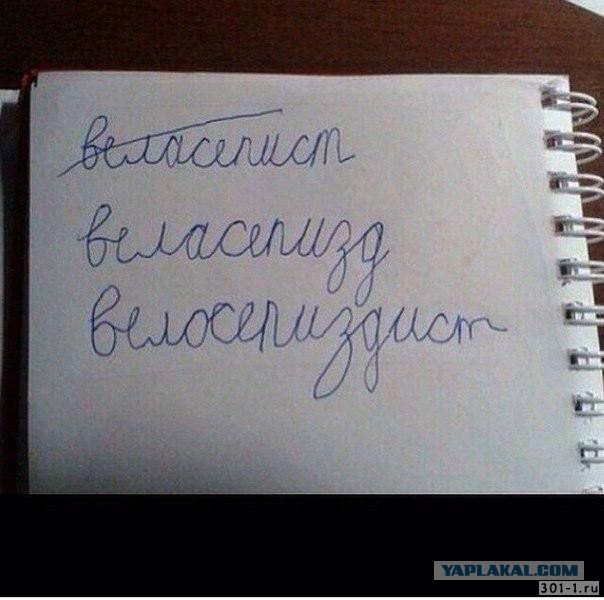 веласепист
веласепизд
велосепиздист
YAPLAKAL.COM
301-1.ru